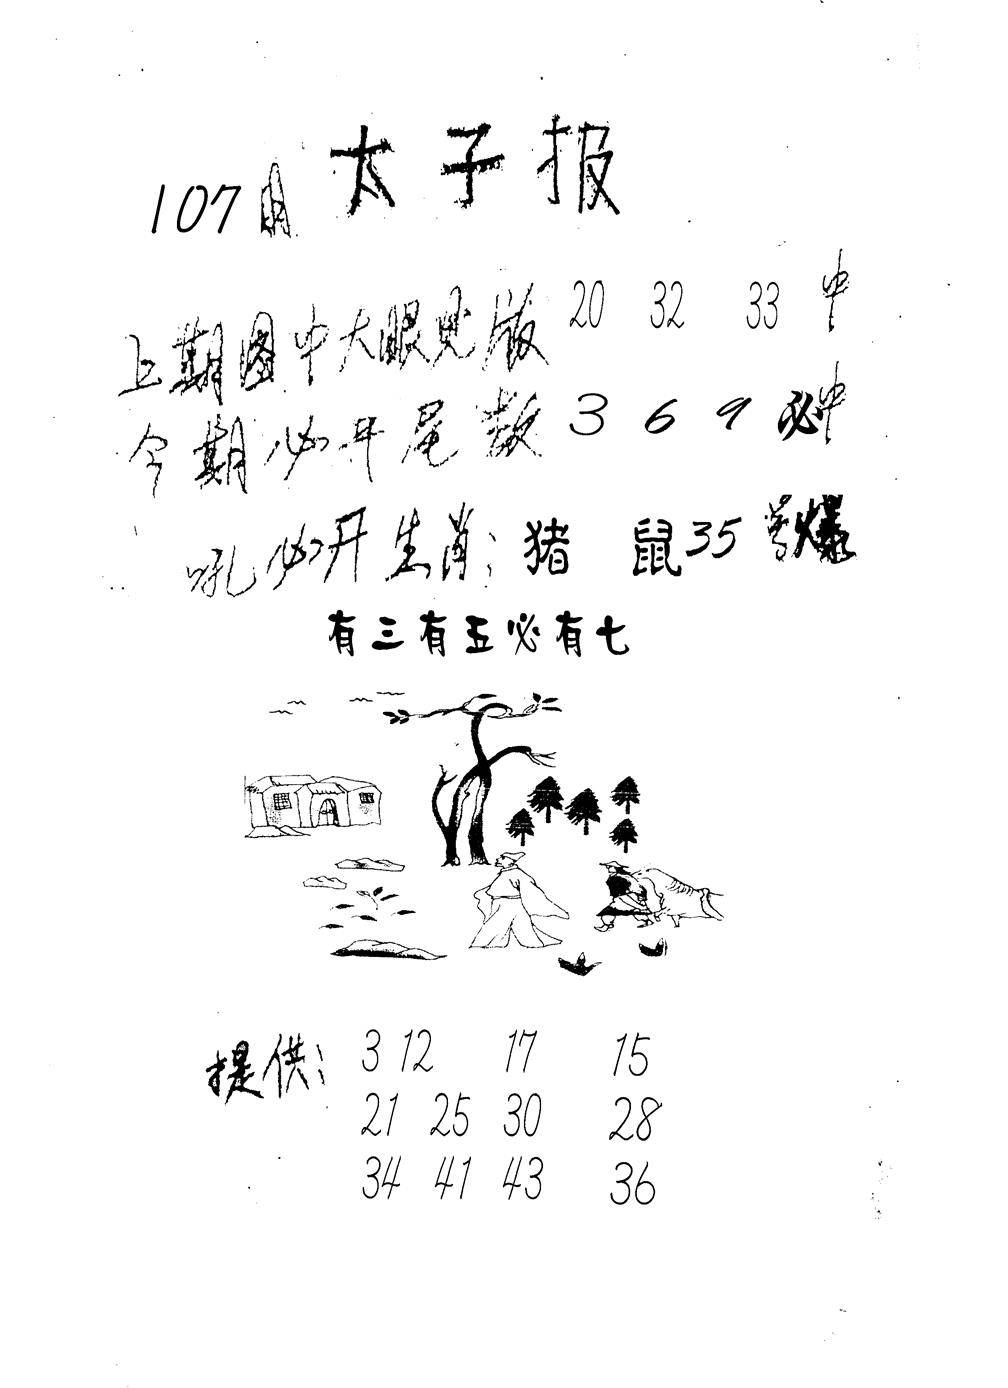 太子报
107期
上期图中大眼见版 20 32 33 中
今期必开尾数 3 6 9 必中
吼必开生肖: 猪 鼠 35 号爆
有三有五必有七
提供: 3 12 17 15
21 25 30 28
34 41 43 36